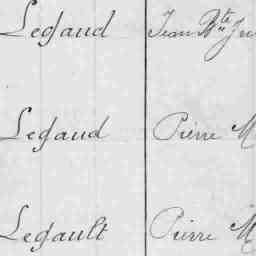 Legaud Jean Bte
Legaud Pierre M
Legault Pierre M